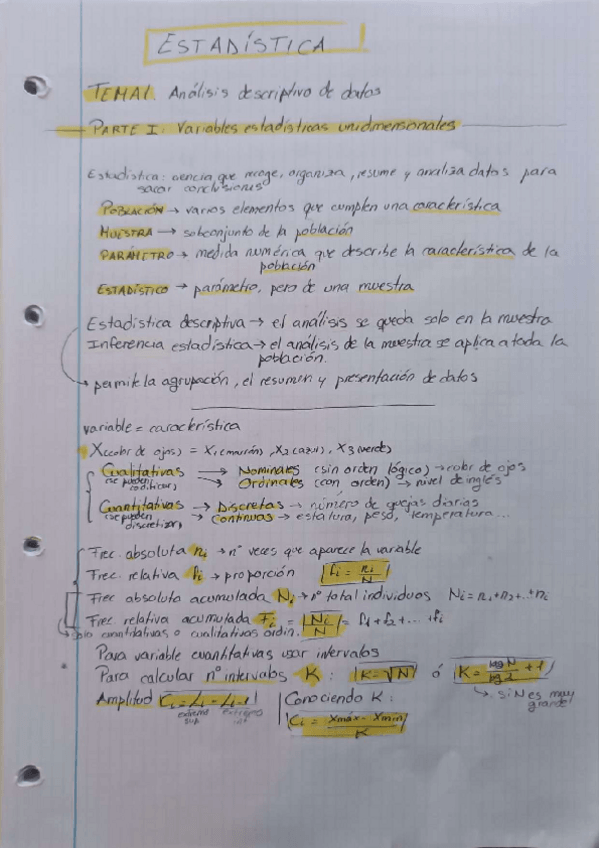 ESTADÍSTICA
TEMA 1. Análisis descriptivo de datos
PARTE I: Variables estadísticas unidimensionales
Estadística: ciencia que recoge, organiza, resume y analiza datos para
sacar conclusiones
POBLACIÓN → varios elementos que cumplen una característica
MUESTRA → subconjunto de la población
PARÁMETRO → medida numérica que describe la característica de la
población
ESTADÍSTICO → parámetro, pero de una muestra
Estadística descriptiva → el análisis se queda solo en la muestra
Inferencia estadística → el análisis de la muestra se aplica a toda la
población.
→ permite la agrupación, el resumen y presentación de datos
variable = característica
X(color de ojos) = X1(marrón), X2(azul), X3(verde)
Cualitativas → Nominales (sin orden lógico) → color de ojos
(se pueden codificar) → Ordinales (con orden) → nivel de inglés
Cuantitativas → Discretas → número de quejas diarias
(se pueden discretizar) → Continuas → estatura, peso, temperatura...
Frec. absoluta ni → nº veces que aparece la variable
Frec. relativa fi → proporción fi = ni/N
Frec absoluta acumulada Ni → nº total individuos Ni = n1+n2+..+ni
Frec relativa acumulada Fi = Ni/N = f1+f2+...+fi
→ solo cuantitativas o cualitativas ordin.
Para variable cuantitativas usar intervalos
Para calcular nº intervalos K: K = √N ó K = log N/log 2 + 1
→ si N es muy grande
Amplitud Ci = Li - Li-1 | Conociendo K:
extremo sup. extremo inf. Ci = Xmáx - Xmin/K